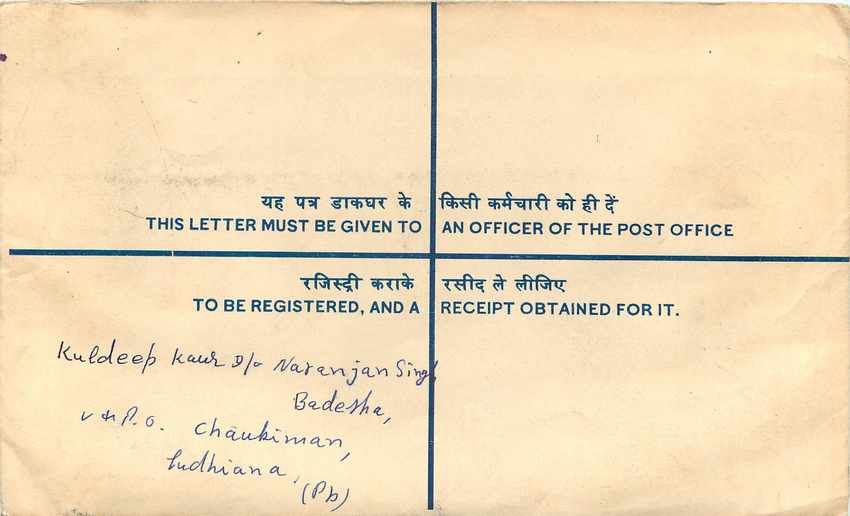 यह पत्र डाकघर के किसी कर्मचारी को ही दें
THIS LETTER MUST BE GIVEN TO AN OFFICER OF THE POST OFFICE
रजिस्ट्री कराके रसीद ले लीजिए
TO BE REGISTERED, AND A RECEIPT OBTAINED FOR IT.
Kuldeep Kaur D/o Naranjan Singh
Badesha,
V & P.O. Chaukiman,
Ludhiana,
(Pb)